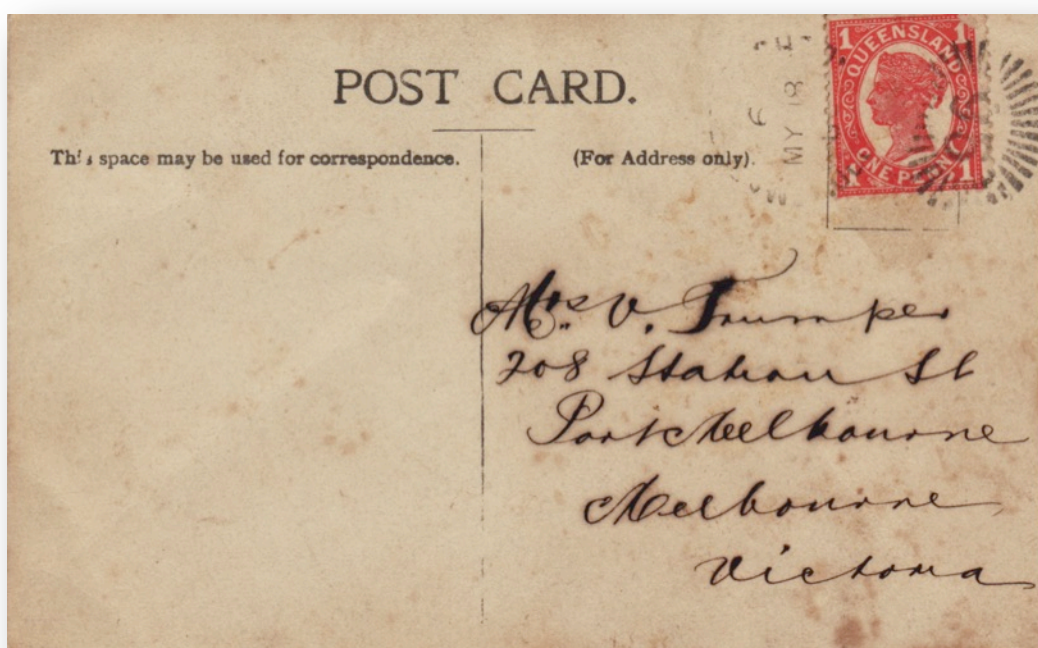 POST CARD.
This space may be used for correspondence.
(For Address only).
1 QUEENSLAND 1
1 ONE PENNY 1
6
MY 08
Mrs. V. Trumper
208 Station St
Port Melbourne
Melbourne
Victoria